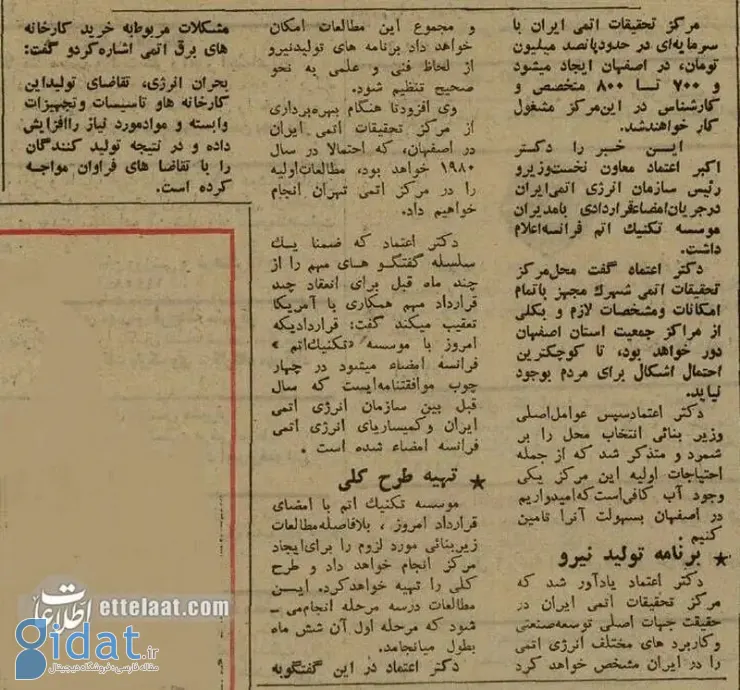 مرکز تحقیقات اتمی ایران با
سرمایه‌ای در حدود پانصد میلیون
تومان، در اصفهان ایجاد میشود
و ۷۰۰ تا ۸۰۰ متخصص و
کارشناس در این مرکز مشغول
کار خواهند شد.
این خبر را دکتر
اکبر اعتماد معاون نخست‌وزیر و
رئیس سازمان انرژی اتمی ایران
در جریان امضاء قراردادی با مدیران
موسسه تکنیک اتم فرانسه اعلام
داشت.
دکتر اعتماد گفت محل مرکز
تحقیقات اتمی شهرک مجهز با تمام
امکانات و مشخصات لازم و بکلی
از مراکز جمعیت استان اصفهان
دور خواهد بود، تا کوچکترین
احتمال اشکال برای مردم بوجود
نیاید.
دکتر اعتماد سپس عوامل اصلی
و زیر بنائی انتخاب محل را بر
شمرد و متذکر شد که از جمله
احتیاجات اولیه این مرکز یکی
وجود آب کافی است که امیدواریم
در اصفهان بسهولت آنرا تامین
کنیم.
★ برنامه تولید نیرو
دکتر اعتماد یادآور شد که
مرکز تحقیقات اتمی ایران در
حقیقت جهات اصلی توسعه صنعتی
و کاربرد های مختلف انرژی اتمی
را در ایران مشخص خواهد کرد
و مجموع این مطالعات امکان
خواهد داد برنامه های تولید نیرو
از لحاظ فنی و علمی به نحو
صحیح تنظیم شود.
وی افزود تا هنگام بهره‌برداری
از مرکز تحقیقات اتمی ایران
در اصفهان، که احتمالا در سال
۱۹۸۰ خواهد بود، مطالعات اولیه
را در مرکز اتمی تهران انجام
خواهیم داد.
دکتر اعتماد که ضمنا یک
سلسله گفتگو های مهم را از
چند ماه قبل برای انعقاد چند
قرارداد مهم همکاری با آمریکا
تعقیب میکند گفت: قراردادیکه
امروز با موسسه «تکنیک اتم»
فرانسه امضاء میشود در چهار
چوب موافقتنامه‌ایست که سال
قبل بین سازمان انرژی اتمی
ایران و کمیساریای انرژی اتمی
فرانسه امضاء شده است.
★ تهیه طرح کلی
موسسه تکنیک اتم با امضای
قرارداد امروز، بلافاصله مطالعات
زیربنائی مورد لزوم را برای ایجاد
مرکز انجام خواهد داد و طرح
کلی را تهیه خواهد کرد. ایــن
مطالعات در سه مرحله انجام می –
شود که مرحله اول آن شش ماه
بطول میانجامد.
دکتر اعتماد در این گفتگو به
مشکلات مربوط به خرید کارخانه
های برق اتمی اشاره کرد و گفت:
بحران انرژی، تقاضای تولید این
کارخانه ها و تاسیسات و تجهیزات
وابسته و مواد مورد نیاز را افزایش
داده و در نتیجه تولید کنندگان
را با تقاضا های فراوان مواجه
کرده است.
اطلاعات ettelaat.com
gidat.ir
مقاله فارسی؛ فروشگاه دیجیتال